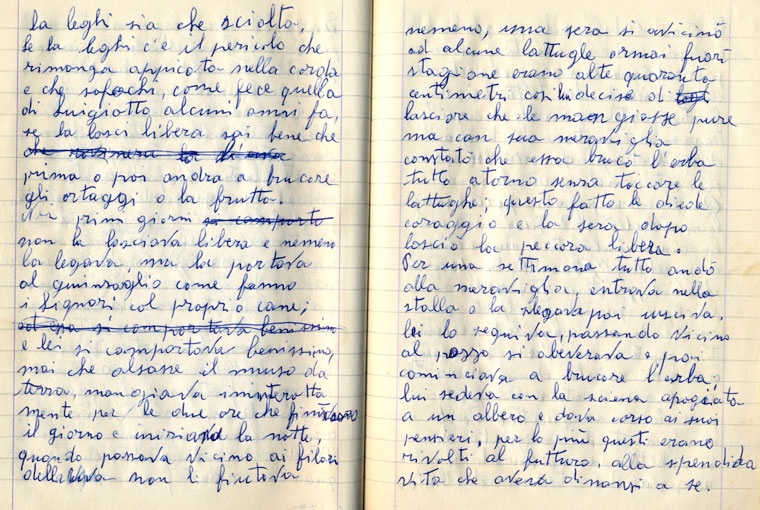 la leghi sia che sciolta,
se la leghi c'è il pericolo che
rimanga appicata nella corda
e che sofochi, come fece quella
di Luigiotto alcuni anni fa,
se la lasci libera sai bene che
che
prima o poi andrà a brucare
gli ortaggi o la frutta.
primi giorni si comporto
non la lasciava libera e nemeno
la legava ma la portava
al guinzaglio come fanno
i Signori col proprio cane;
ed essa si comportava benissim
e lei si comportava benissimo,
mai che alsasse il muso da
terra, mangiava ininterotta
mente per le due ore che finivano
il giorno e iniziava la notte,
quando passava vicino ai filari
dell'uva non li fiutava
nemeno, una sera si avicinò
ad alcune lattughe ormai fuori
stagione erano alte quaranta
centimetri così lui decise di
lasciare che le mangiasse pure
ma con sua meraviglia
constatò che essa brucò l'erba
tutto atorno senza toccare le
lattughe; questo fatto le diede
coraggio e la sera dopo
lasciò la peccora libera.
Per una settimana tutto andò
alla meraviglia, entrava nella
stalla e la slegava poi usciva,
lei lo seguiva, passando vicino
al pozzo si abeverava e poi
cominciava a brucare l'erba,
lui sedeva con la sciena apogiata
a un albero e dava corso ai suoi
pensieri, per lo più questi erano
rivolti al futturo, alla spendida
vita che aveva dinanzi a se.